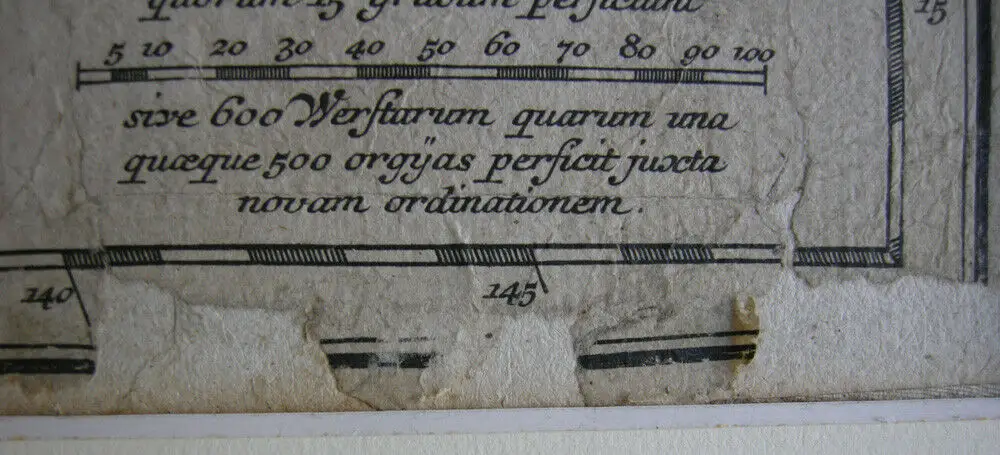 quorum 15 gradum perficiunt
15
5 10 20 30 40 50 60 70 80 90 100
sive 600 Werstarum quarum una
quæque 500 orgÿas perficit juxta
novam ordinationem.
140 145